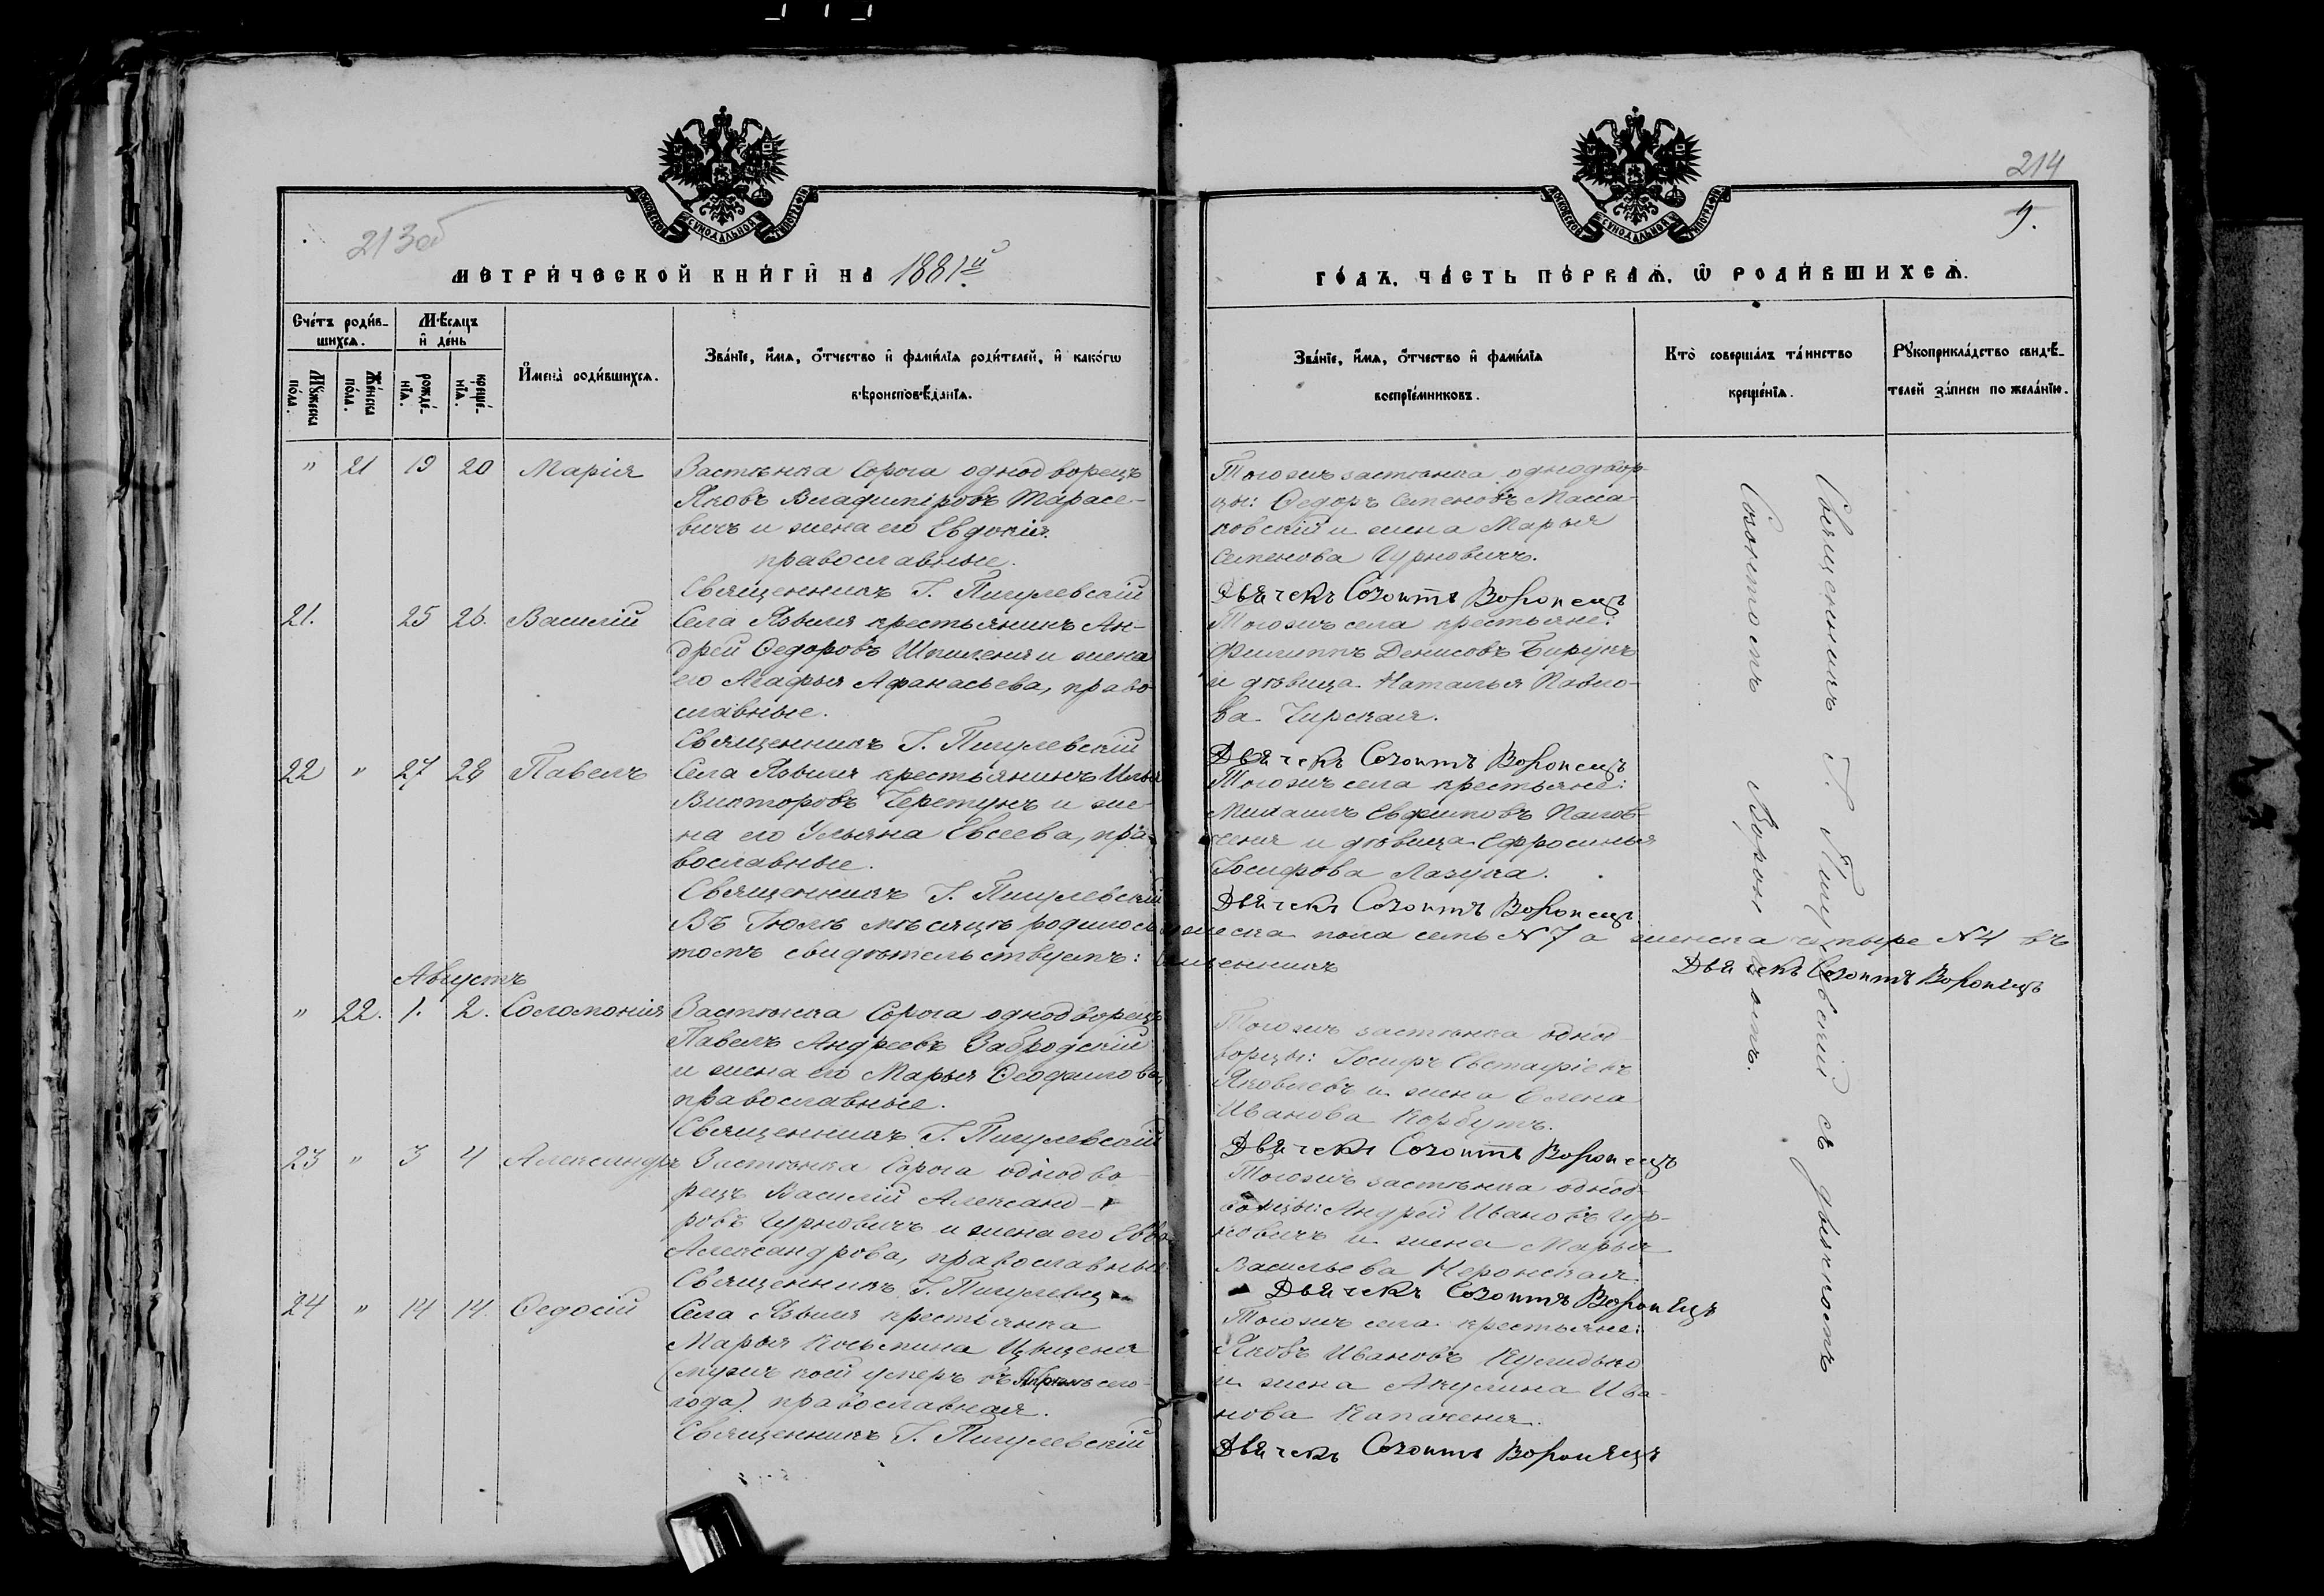 214
213об
9.
МЕТРИЧЕСКОЙ КНИГИ НА 1881й
ГОДЪ, ЧАСТЬ ПЕРВАЯ, Ѡ РОДИВШИХСЯ.
Счетъ родив-
шихся.
Мужеска пола.
Женска пола.
Мѣсяцъ и день
рожденія.
крещенія.
Имена родившихся.
Званіе, имя, отчество и фамилія родителей, и какогѡ
вѣроисповѣданія.
Званіе, имя, отчество и фамилія
воспріемниковъ.
Кто совершалъ таинство
крещенія.
Рукоприкладство свидѣ-
телей записи по желанію.
" 21 19 20 Марія
Застѣнка Сорога однодворецъ
Яковъ Владиміровъ Тарасе-
вичъ и жена его Евдокія
православные.
Священникъ Г. Пигулевскій
Тогожъ застѣнка однодвор-
цы: Ѳедоръ Семеновъ
и жена Марья
Семенова Гурновичъ.
Дьячекъ Созонтъ Воронецъ
21. 25 26. Василій
Села Язвиля крестьянинъ Ан-
дрей Ѳедоровъ и жена
его Агафья Афанасьева, право-
славные.
Священникъ Г. Пигулевскій
Тогожъ села крестьяне:
Филиппъ Денисовъ Бирукъ
и дѣвица Наталья Павло-
ва Чирская.
Дьячекъ Созонтъ Воронецъ
22 " 27 28 Павелъ
Села Язвиля крестьянинъ Илья
Викторовъ Черетунъ и же-
на его Ульяна Евсеева, пра-
вославные.
Священникъ Г. Пигулевскій
Тогожъ села крестьяне:
Михаилъ
и дѣвица Ефросинья
Іосифова Лазука.
Дьячекъ Созонтъ Воронецъ
Въ Іюлѣ мѣсяцѣ родилось мужеска пола семь N 7 а женска четыре N 4 въ
томъ свидѣтельствуетъ: Священникъ
Дьячекъ Созонтъ Воронецъ
Августъ
" 22. 1. 2. Соломонія
Застѣнка Сорога однодворецъ
Павелъ Андреевъ Забродскій
и жена его Марья Ѳеофилова,
православные.
Священникъ Г. Пигулевскій
Тогожъ застѣнка одно-
ворцы: Іосифъ Евстафіевъ
Яковлевъ и жена Елена
Иванова Корбутъ.
Дьячекъ Созонтъ Воронецъ
23 " 3 4 Александръ
Застѣнка Сорога однодво-
рецъ Василій Александ-
ровъ Гурновичъ и жена его Евва
Александрова, православные
Священникъ Г. Пигулевс
Тогожъ застѣнка однод-
ворцы: Андрей Ивановъ Гур-
новичъ и жена Марья
Васильева
Дьячекъ Созонтъ Воронецъ
24 " 14 14. Ѳедосій
Села Язвиля крестьянка
Марья Косьмина
(мужъ коей умеръ въ Апрѣлѣ сего
года). православная.
Священникъ Г. Пигулевскій
Тогожъ села крестьяне:
Яковъ Ивановъ
и жена Акулина Ива-
нова Капаченя.
Дьячекъ Созонтъ Воронецъ
Священникъ Г. Пигулевскій съ дьячкомъ
Созонтомъ Воронцомъ.